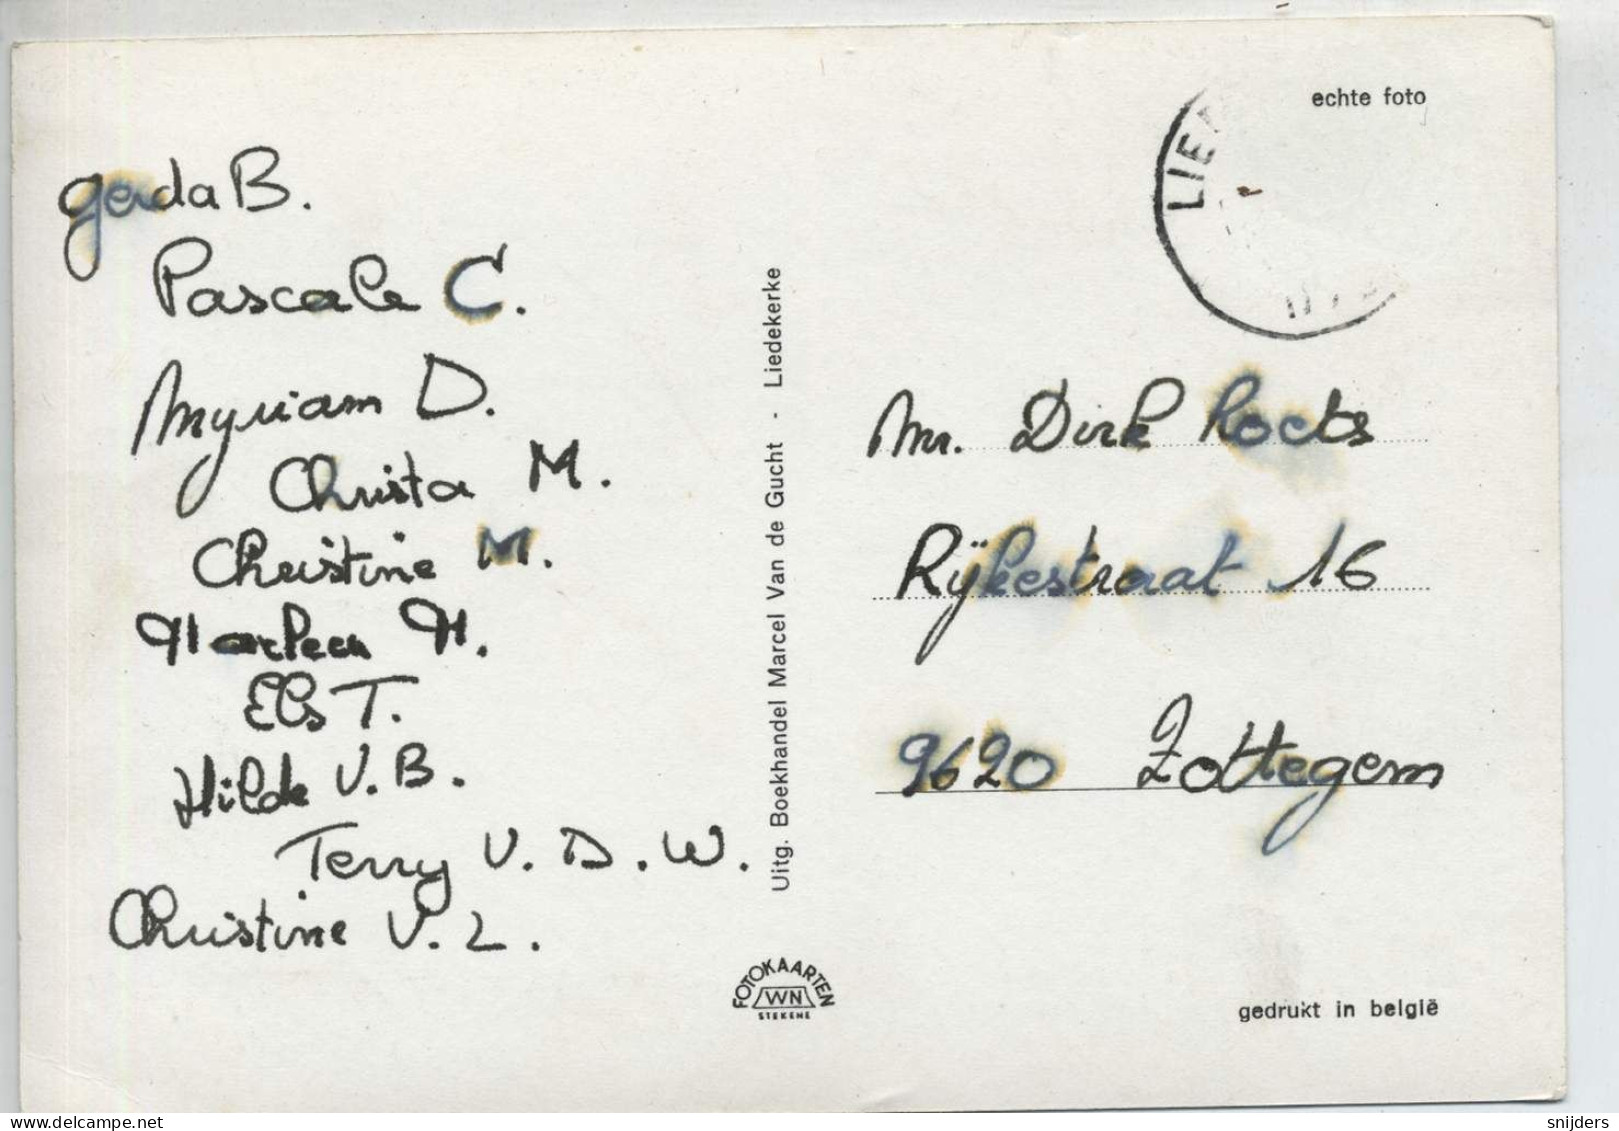 gerda B.
Pascale C.
Myriam D.
Christa M.
Christine M.
Marleen M.
Els T.
Hilde V.B.
Terry V.D.W.
Christine V.L.
Uitg. Boekhandel Marcel Van de Gucht - Liedekerke
FOTOKAARTEN
WN
STEKENE
echte foto
LIE
Mr. Dirk
Rijkestraat 16
9620 Zottegem
gedrukt in belgië
snijders